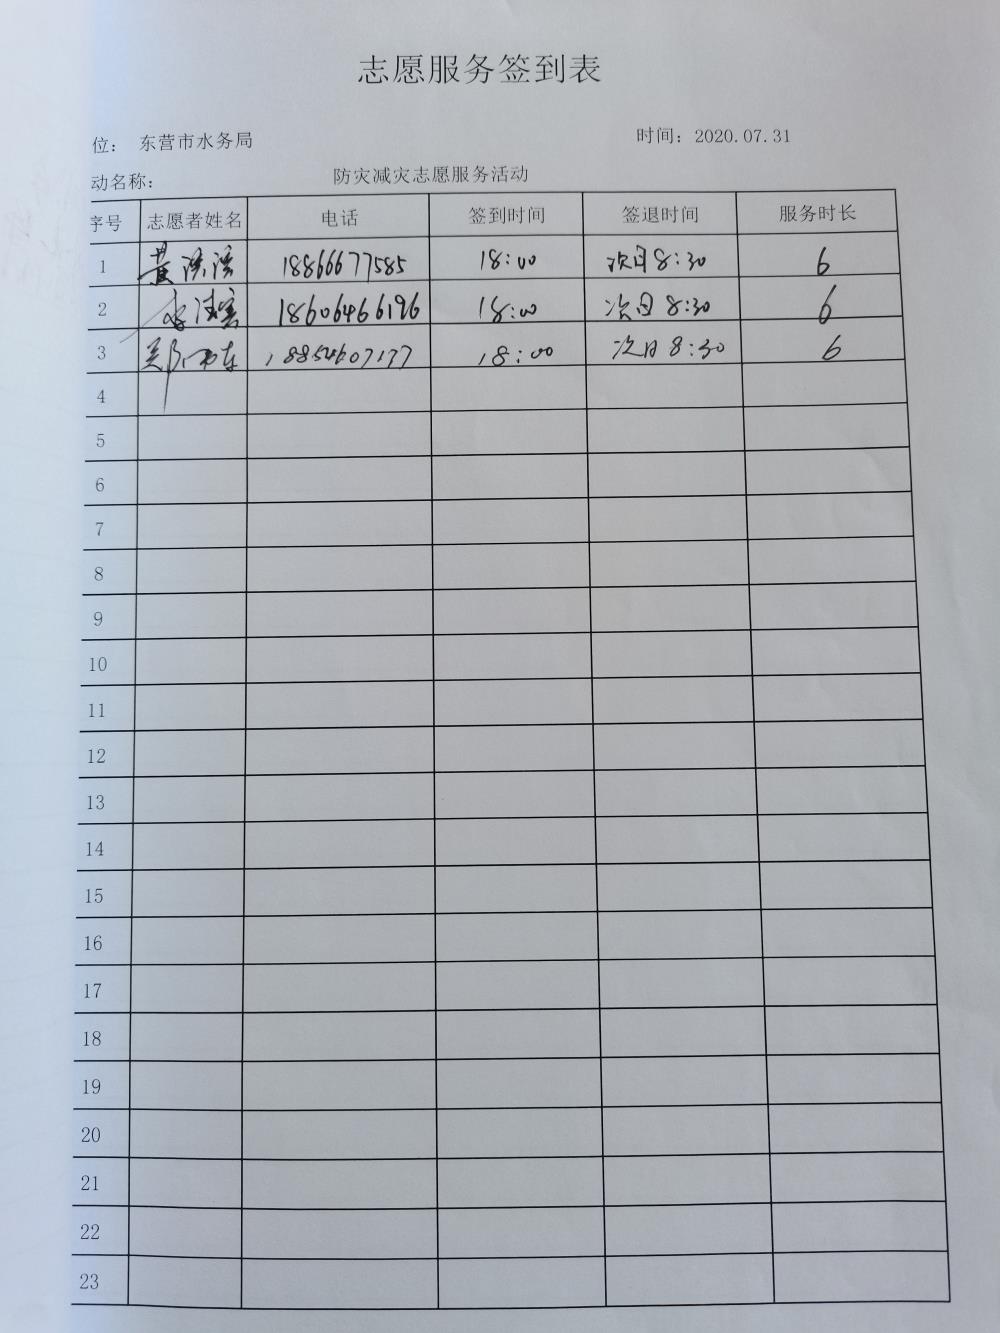 志愿服务签到表
位： 东营市水务局 时间：2020.07.31
动名称： 防灾减灾志愿服务活动
序号 志愿者姓名 电话 签到时间 签退时间 服务时长
1 黄 18866677585 18:00 次日8:30 6
2 李 18606466196 18:00 次日8:30 6
3 郑 18:00 次日8:30 6
4
5
6
7
8
9
10
11
12
13
14
15
16
17
18
19
20
21
22
23